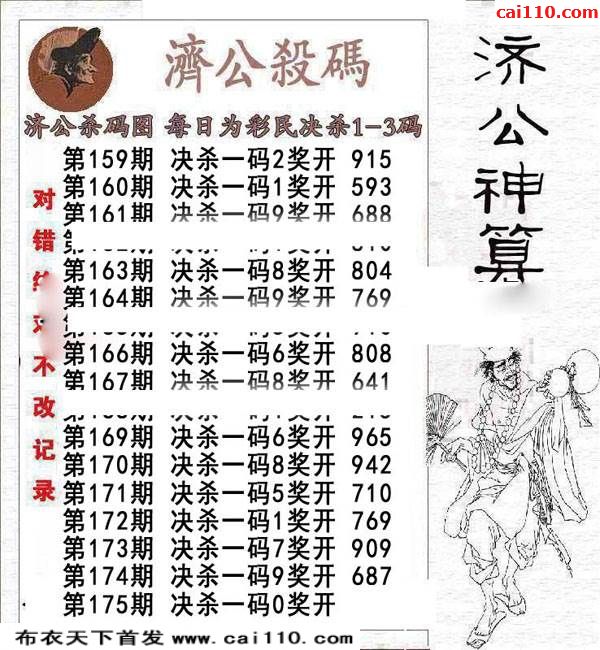 cai110.com
濟公殺碼
济公神算
济公杀码图 每日为彩民决杀1-3码
第159期 决杀一码2奖开 915
第160期 决杀一码1奖开 593
第161期 决杀一码9奖开 688
第163期 决杀一码8奖开 804
第164期 决杀一码9奖开 769
第166期 决杀一码6奖开 808
第167期 决杀一码8奖开 641
第169期 决杀一码6奖开 965
第170期 决杀一码8奖开 942
第171期 决杀一码5奖开 710
第172期 决杀一码1奖开 769
第173期 决杀一码7奖开 909
第174期 决杀一码9奖开 687
第175期 决杀一码0奖开
对错 不改记录
布衣天下首发 www.cai110.com